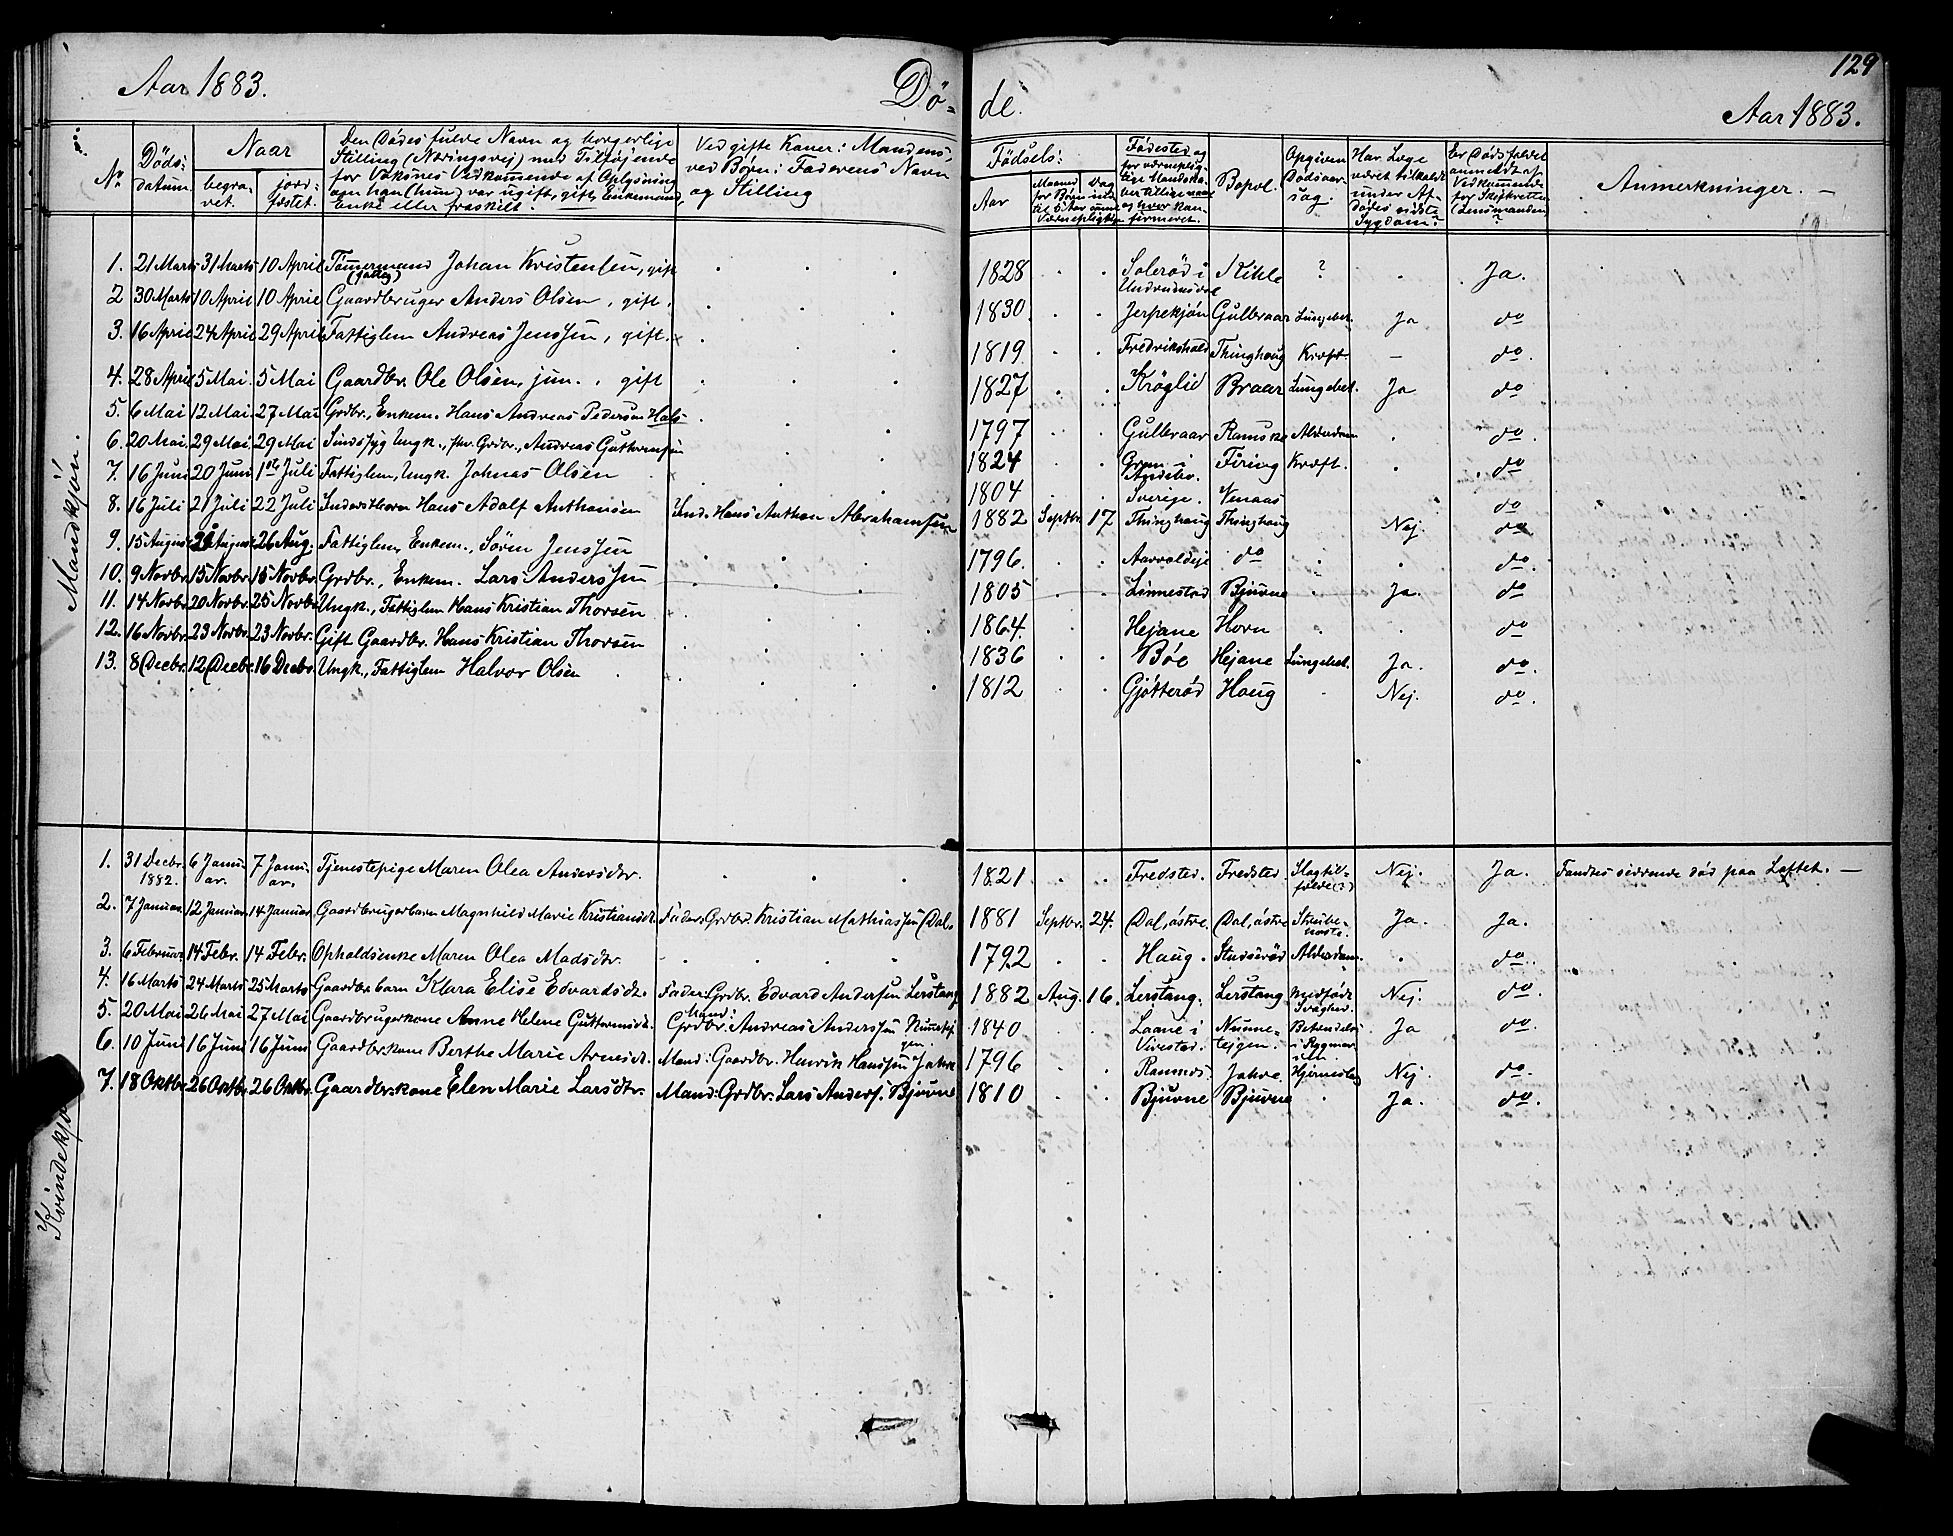 129
Aar 1883. Dø- de. Aar 1883.
No.
Døds: datum.
Naar
begra- vet.
jord- fæstet.
Den Dødes fulde Navn og borgerlige
Stilling (Næringsvej) med Tilføjende
for Voksnes Vedkommende af Oplysning
om han (hun) var ugift, gift, Enkemand,
Enke eller fraskilt.
Ved gifte Koner: Mandens,
ved Børn: Faderens Navn
og Stilling
Fødsels:
Aar
Maaned
Dag
Fødested og
for værneplig-
tige Mandska-
ber tillige naar
og hvor kon-
firmeret.
Bopæl.
Opgiven
Dødsaar-
sag.
Har Læge
været tilkaldt
under Af-
dødes sidste
Sygdom?
Er Dødsfaldet
anmeldt af
Vedkommende
for Skifteretten
(Lensmanden)
?
Anmerkninger. —
Mandkjøn.
1. 21 Marts 31 Marts 10 April Tømermand Johan Kristensen, gift 1828 Solerød i Kihle ? Ja.
(fattig) Undrumsdal
2 30 Marts 10 April 10 April Gaardbruger Anders Olsen, gift. 1830. Jerpekjøn Gulbraar Lungebet. Ja do
3. 16 April 24 April 29 April Fattiglem Andreas Jenssen, gift. 1819. Fredrikshald Thinghaug Kræft. — do.
4. 28 April 5 Mai 5 Mai Gaardbr. Ole Olsen, jun., gift 1827 Krøglid Braar Lungebet. Ja do
5. 6 Mai 12 Mai 27 Mai Grdbr., Enkem. Hans Andreas Pedersen 1797 Gulbraar Ramske Alderdom do.
6. 20 Mai 29 Mai 29 Mai Sindssyg Ungk., Grdbr., Andreas Guttormsen 1824 i Firing Kræft. do
Andebu.
7. 16 Juni 20 Juni 1ste Juli Fattiglem, Ungk. Johnas Olsen 1804 Sverige. Venaas do
8. 16 Juli 21 Juli 22 Juli Inderstbarn Hans Adolf Anthonsen Ind. Hans Anthon Abrahamsen 1882 Septbr. 17 Thinghaug Thinghaug Nej. do
9. 15 August 26 Aug. Fattiglem, Enkem., Søren Jenssen 1796. do do.
10. 9 Novbr. 15 Novbr. 15 Novbr. Grdbr., Enkem. Lars Anderssen 1805 Linnestad Bjuvne Ja. do
11. 14 Novbr. 20 Novbr. 25 Novbr. Ungk., Fattiglem Hans Kristian Thorsen 1864. Hejane Horn do
12. 16 Novbr. 23 Novbr. 23 Novbr. Gift Gaardbr. Hans Kristian Thorsen 1836 Bøe Hejane Lungebet. Ja. do.
13. 8 Decbr. 12 Decbr. 16 Decbr. Ungk., Fattiglem Halvor Olsen 1812 Gjøtterød Haug Nej. do.
Kvindekjøn
1. 31 Decbr. 6 Janu- 7 Janu- Tjenestepige Maren Olea Andersdtr. 1821 Fredsted. Fredsted Slagtil- Nej. Ja. Fandtes død paa Loftet. —
1882. ar. ar. fælde(?)
2. 7 Januar 12 Januar 14 Januar Gaardbrugerbarn Magnhild Marie Kristiansdt. Fader: Grdbr. Kristian Mathiassen Dal. 1881 Septbr. 24. Dal, østre. Dal, østre Strube- Ja Ja.
hoste.
3. 6 Februar 14 Febr. 14 Febr. Opholdsenke Maren Olea Madsdtr. 1792 Haug. Stulserød Alderdom. do.
4. 16 Marts 24 Marts 25 Marts Gaardbr. barn Klara Elise Edvardsdt. Fader: Grdbr. Edvard Andersen Lerstang 1882 Aug. 16. Lerstang. Lerstang Medfødt Nej. do.
Svaghed.
5. 20 Mai 26 Mai 27 Mai Gaardbrugerkone Anne Helene Guttormsdt. Mand: Grdbr. Andreas Anderssen 1840 Laane i Numme- Betændelse Ja do.
Vivestad. tejgen. i Rygmar-
6. 10 Juni 16 Juni 16 Juni Gaardbr. kone Berthe Marie Arnesdt. Mand: Gaardbr. Henrik Hanssen Jahre 1796 Ramnes. Jahre. Nej. do.
7. 18 Oktbr. 26 Oktbr. 26 Oktbr. Gaardbr. kone Elen Marie Larsdtr. Mand: Grdbr. Lars Anders. Bjuvne 1810 Bjuvne Bjuvne Ja. do.